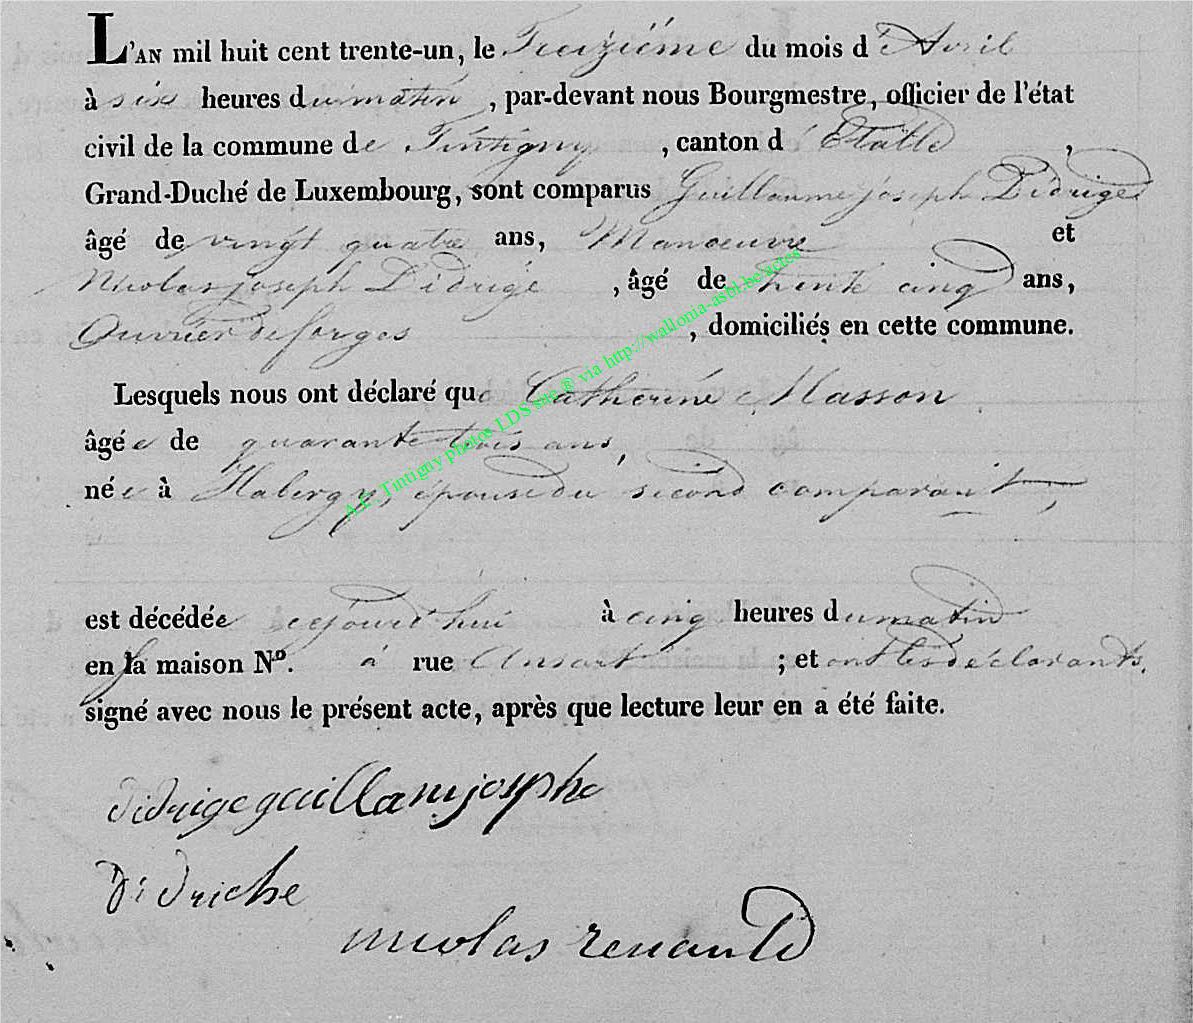 L'AN mil huit cent trente-un, le Treizième du mois d'Avril
à six heures du matin, par-devant nous Bourgmestre, officier de l'état
civil de la commune de Tintigny, canton d'Etalle,
Grand-Duché de Luxembourg, sont comparus Guillaume joseph Didrigé
âgé de vingt quatre ans, Manoeuvre et
Nicolas joseph Didrigé, âgé de trente cinq ans,
Ouvrier de forges, domiciliés en cette commune.
Lesquels nous ont déclaré que Catherine Masson
âgée de quarante trois ans,
née à Habergy, épouse du second comparant,
est décédée cejourd'hui à cinq heures du matin
en sa maison No. à rue Ansart ; et ont les déclarants,
signé avec nous le présent acte, après que lecture leur en a été faite.
didrige guillamjosphe
Didriche
nicolas renauld
A.E. Tintigny photos LDS site ® via http://wallonia-asbl.be/actes